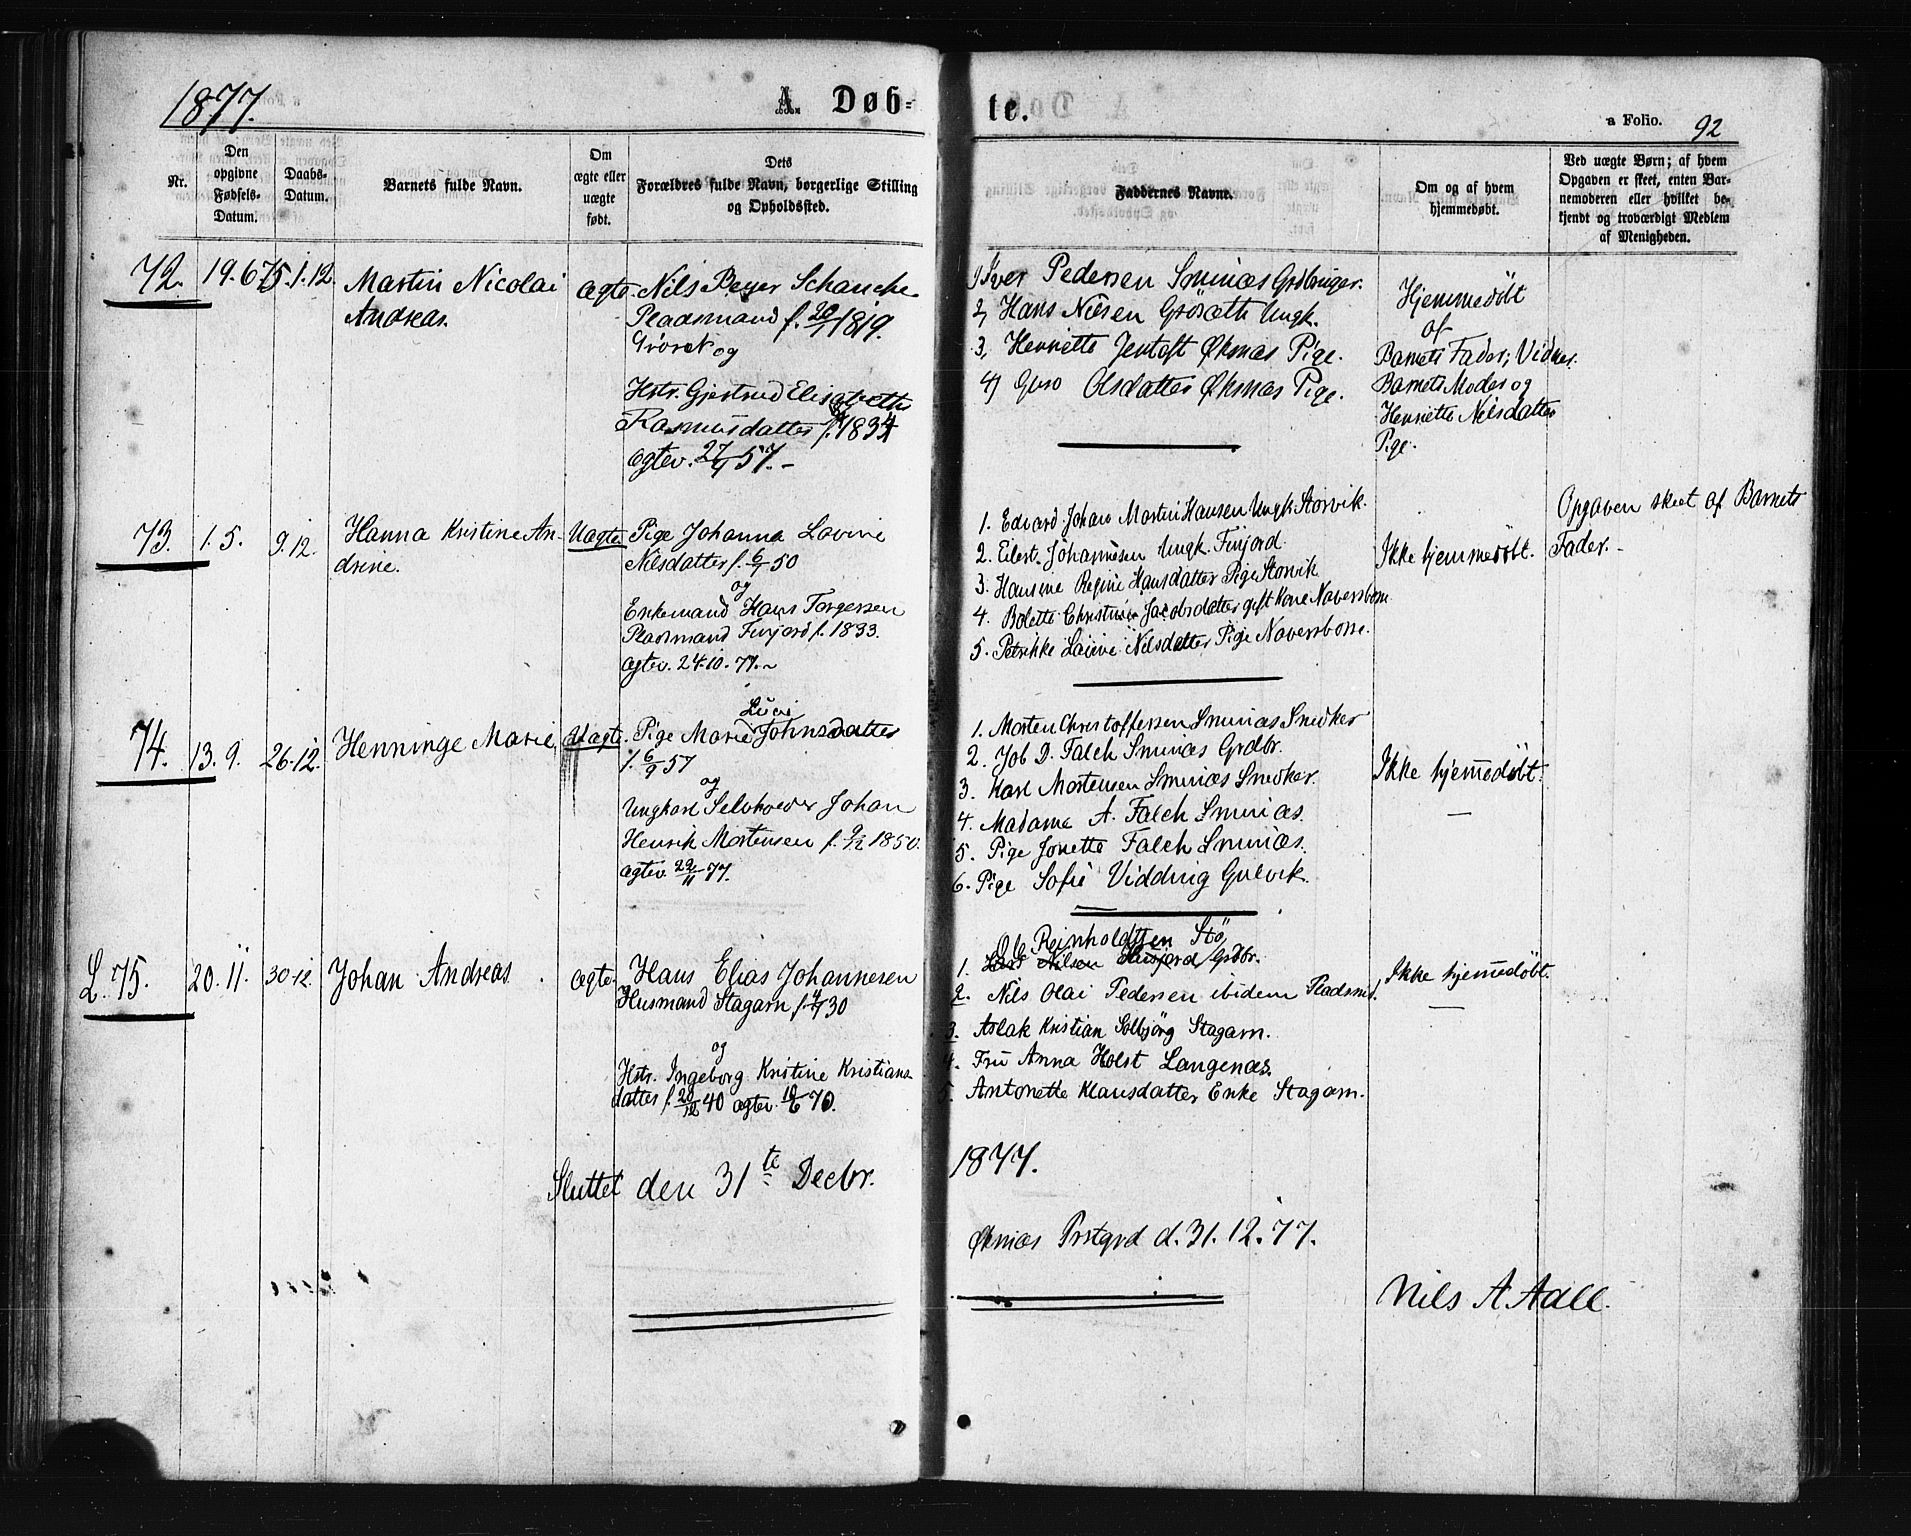 1877.
A. Døb-
te.
a Folio. 92
Nr.
Den
opgivne
Fødsels-
Datum.
Daabs-
Datum.
Barnets fulde Navn.
Om
ægte eller
uægte
født.
Dets
Forældres fulde Navn, borgerlige Stilling
og Opholdssted.
Faddernes Navne.
Om og af hvem
hjemmedøbt.
Ved uægte Børn; af hvem
Opgaven er skeet, enten Bar-
nemoderen eller hvilket be-
kjendt og troværdigt Medlem
af Menigheden.
72.
19.6
Martin Nicolai
Andreas.
Ægte.
Nils Beyer Schanche
Pladsmand f. 1819.
og
Hstr. Gjertrud Elisabeth
Rasmusdatter f. 1834
ægtev. 57.-
1, Iver Pedersen Smines Grdbruger.
2, Hans Nilsen Ungk.
3, Henriette Jentoft Øksnæs Pige.
4, Guro Olsdatter Øksnæs Pige.
Hjemmedøbt
af
Barnets Fader; Vidner
Barnets Moder og
Henriette Nilsdatter
Pige.
73.
1. 5.
9.12.
Hanna Kristine An-
drine.
Uægte
Pige Johanna Lovine
Nilsdatter f. 6/1 50
og
Enkemand Hans Torgersen
Pladsmand Finjord f. 1833.
ægtev. 24.10.77.~
1. Edvard Johan Martin Hansen Ungk. Storvik.
2. Eilert Johannesen Ungk. Finjord.
3. Hansine Regine Hansdatter Pige Storvik
4. Bolette Christine Jacobsdatter gift Kone
5. Petrikke Lovine Nilsdatter Pige
Ikke hjemmedøbt.
Opgaven skeet af Barnets
Fader.-
74.
13. 9.
26.12.
Henninge Marie
Uægte.
Pige Marie Lucie Johnsdatter
f. 6/9 57
og
Ungkarl Selvhoeder Johan
Henrik Mortensen f. 9/2 1850.
ægtev. 22/11 77.
1. Morten Christoffersen Sminæs Snedker
2. Job D. Falch Sminæs Grdbr.
3. Karl Mortensen Sminæs Snedker.
4. Madame A. Falch Sminæs.
5. Pige Jonette Falch Sminæs.
6. Pige Sofie Vidding Gulvik.
Ikke hjemmedøbt.
L. 75.
20. 11.
30.12.
Johan Andreas
Ægte.
Hans Elias Johannesen
Husmand Stagarn f. 30
og
Hstr. Ingeborg Kristine Kristians
datter f. 20/12 40 ægtev. 10/6 70.
Ole Reinholdtsen Stø
1. Nilsen Grdbr.
2. Nils Olai Pedersen ibidem Pladsmd.
3. Aslak Kristian Solbjørg Stagarn.
4. Fru Anna Holst Langenæs.
5. Antonette Klausdatter Enke Stagarn.
Ikke hjemmedøbt.
Sluttet den 31te Decbr.
1877.
Øksnæs Prstgrd d. 31. 12. 77.
Nils A Aall.